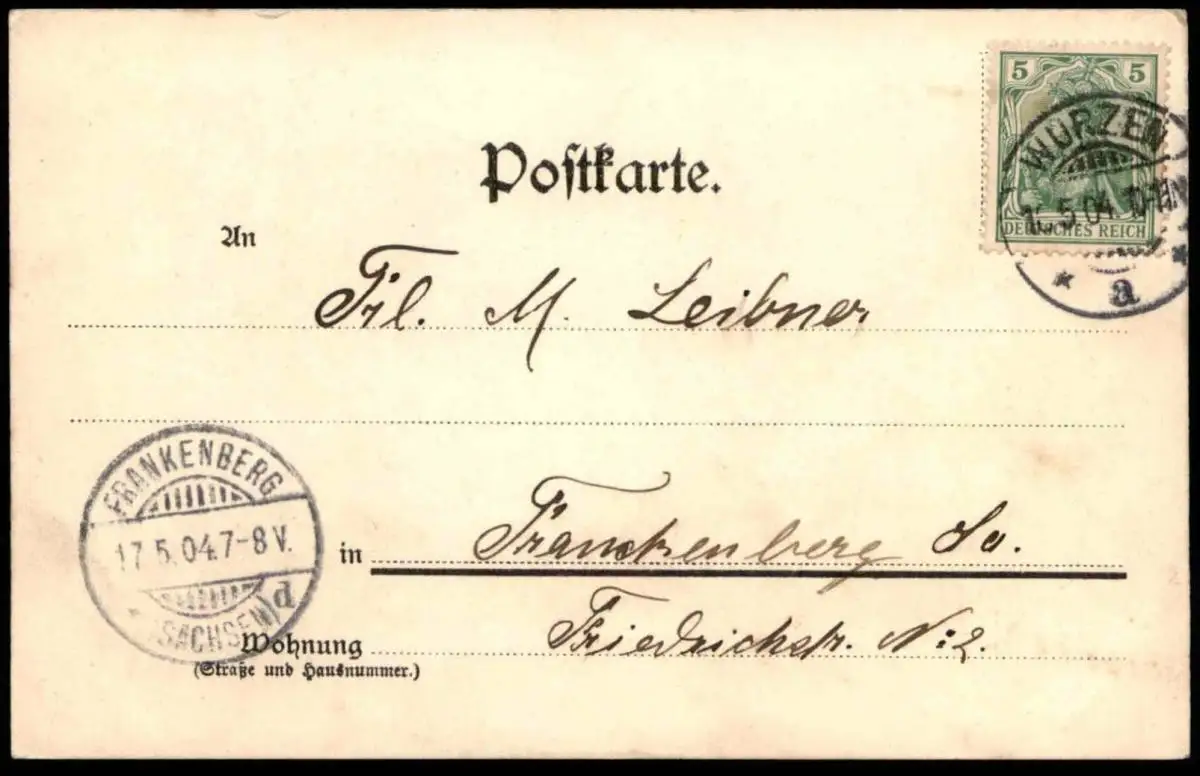 5 5
WURZEN
5.04.
DEUTSCHES REICH
a
Postkarte.
An
Frl. M. Leibner
FRANKENBERG
17.5.04.7-8 V.
(SACHSEN) d
in Franckenberg Sa.
Wohnung Friedrichstr. N: 2.
(Straße und Hausnummer.)